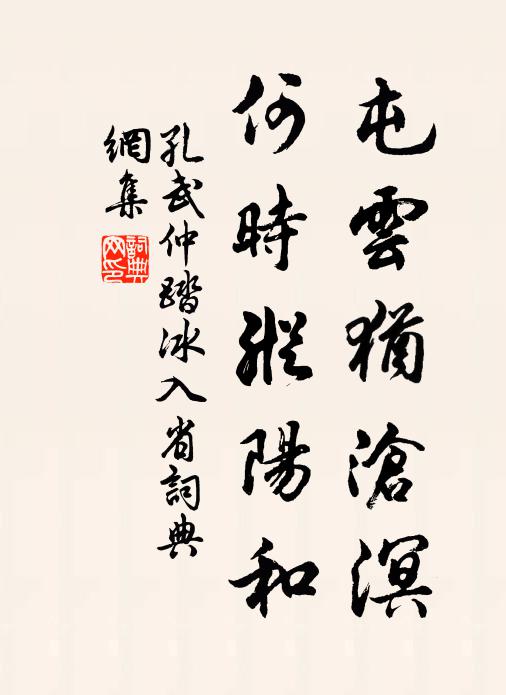 屯雲猶滄溟
何時縱陽和
孔武仲踏冰入省詞典
網集
詞典網印